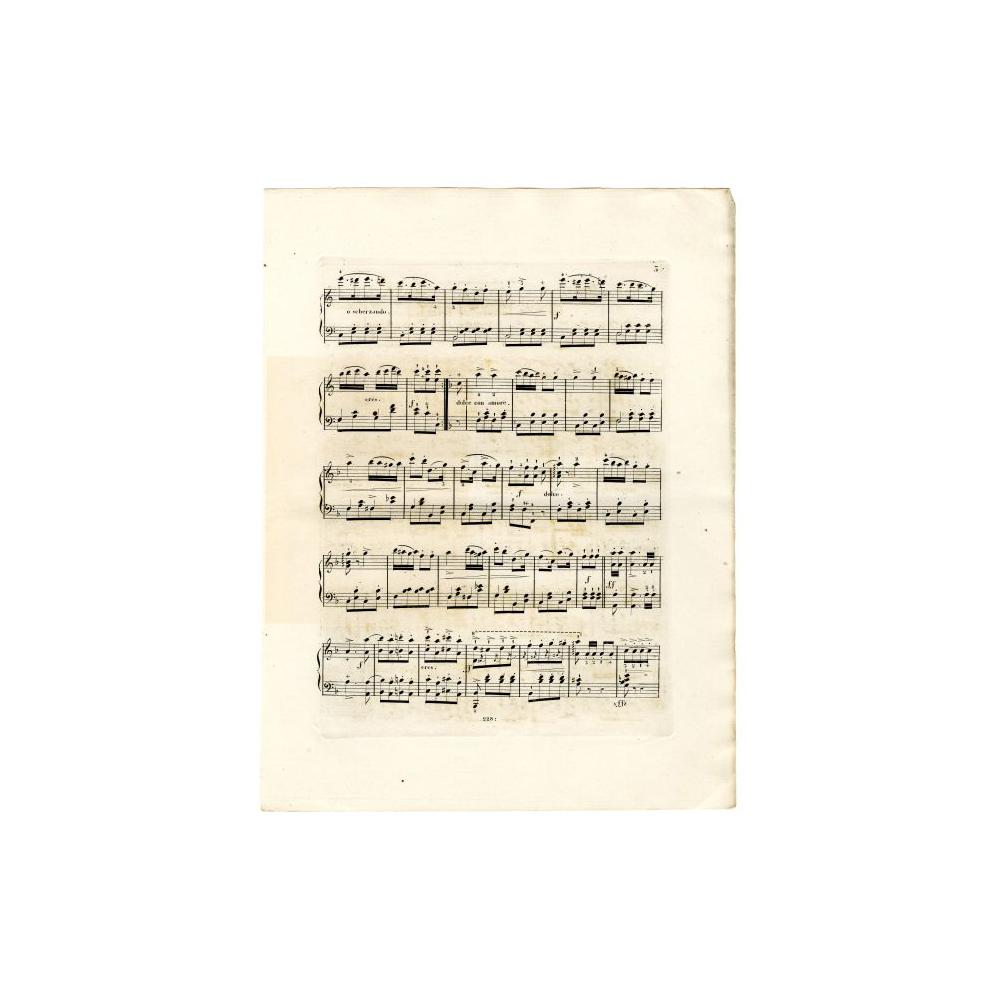 3
o scherzando.
f
cres.
f
dolce con amore.
f
dolce.
f
ff
f
cres.
8
ff
sffz
228: